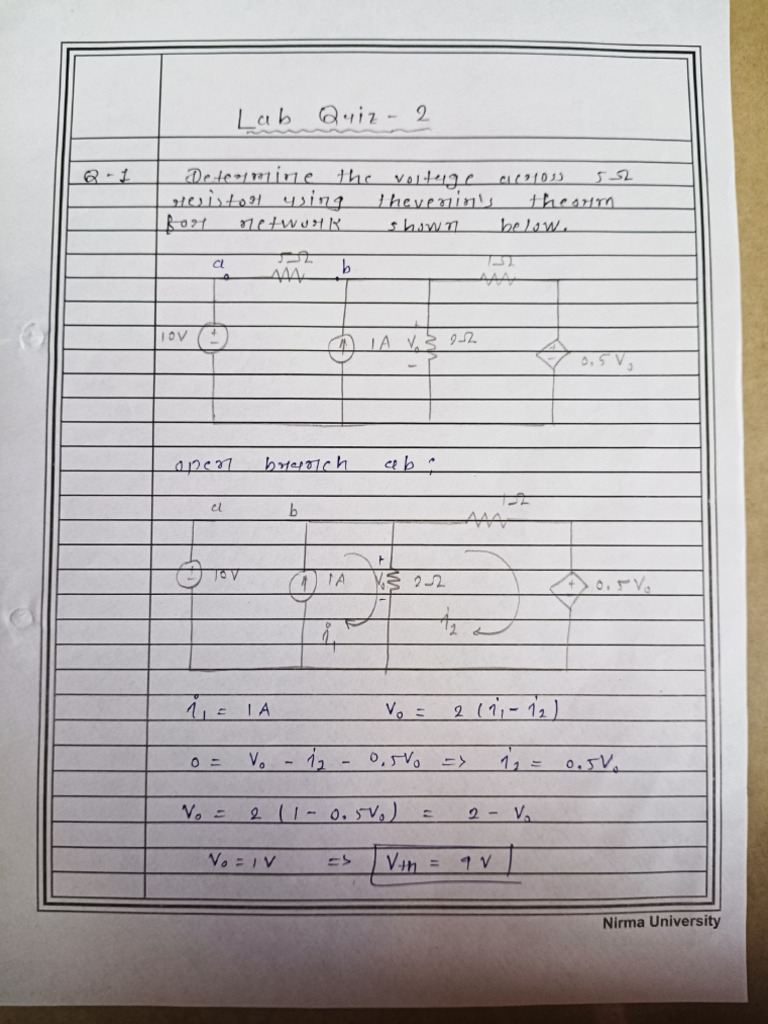 Lab Quiz - 2
Q-1 Determine the voltage across 5Ω
resistor using thevenin's theorm
for network shown below.
a 5Ω b 1Ω
10V + - 1A + V₀ - 2Ω + - 0.5V₀
open branch ab;
a b 1Ω
+ - 10V 1A + V₀ - 2Ω + 0.5V₀
i₁ i₂
i₁ = 1A V₀ = 2(i₁-i₂)
0 = V₀ - i₂ - 0.5V₀ => i₂ = 0.5V₀
V₀ = 2(1-0.5V₀) = 2 - V₀
V₀ = 1V => Vth = 9V
Nirma University